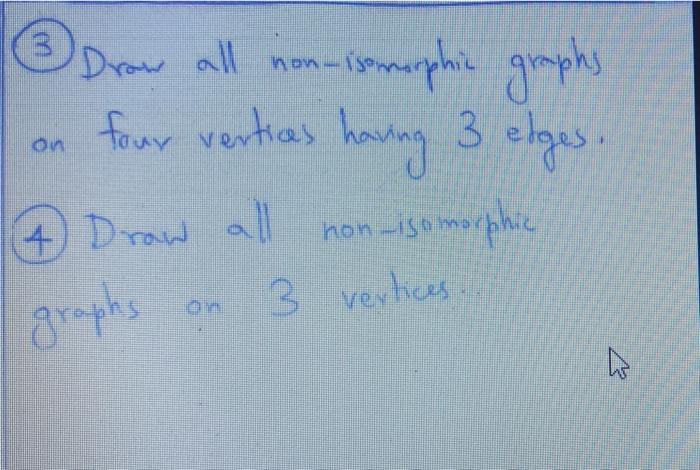 ③ Draw all non-isomorphic graphs
on four vertices having 3 edges.
④ Draw all non-isomorphic
graphs on 3 vertices..